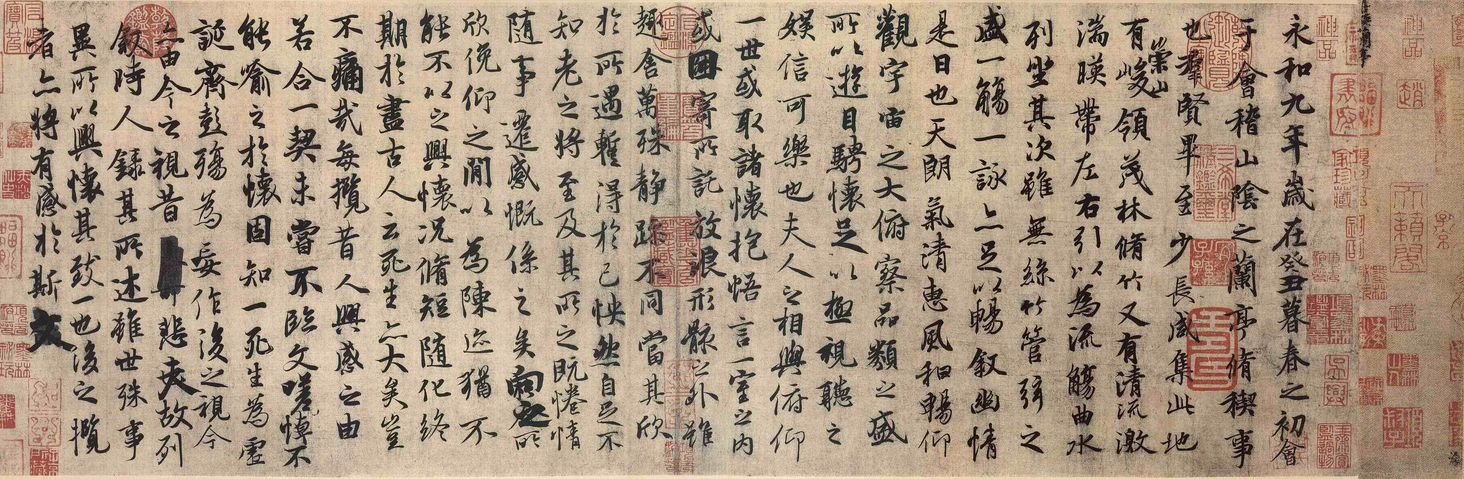 永和九年歲在癸丑暮春之初會
于會稽山陰之蘭亭脩稧事
也羣賢畢至少長咸集此地
有崇山峻領茂林脩竹又有清流激
湍暎帶左右引以為流觴曲水
列坐其次雖無絲竹管弦之
盛一觴一詠亦足以暢叙幽情
是日也天朗氣清惠風和暢仰
觀宇宙之大俯察品類之盛
所以遊目騁懷足以極視聽之
娛信可樂也夫人之相與俯仰
一世或取諸懷抱悟言一室之內
或因寄所託放浪形骸之外雖
趣舍萬殊静躁不同當其欣
於所遇蹔得於己怏然自足不
知老之將至及其所之既惓情
隨事遷感慨係之矣向之所
欣俛仰之閒以為陳迹猶不
能不以之興懷況脩短隨化終
期於盡古人云死生亦大矣豈
不痛哉每攬昔人興感之由
若合一契未嘗不臨文嗟悼不
能喻之於懷固知一死生為虛
誕齊彭殤為妄作後之視今
亦由今之視昔悲夫故列
叙時人錄其所述雖世殊事
異所以興懷其致一也後之攬
者亦將有感於斯文